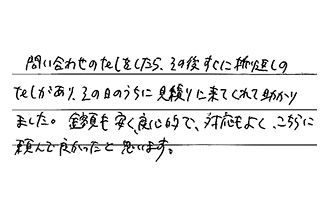 問い合わせのTelをしたら、その後すぐに折り返しの
Telがあり、その日のうちに見積りに来てくれて助かり
ました。金額も安く、良心的で、対応もよく、こちらに
頼んで良かったと思います。